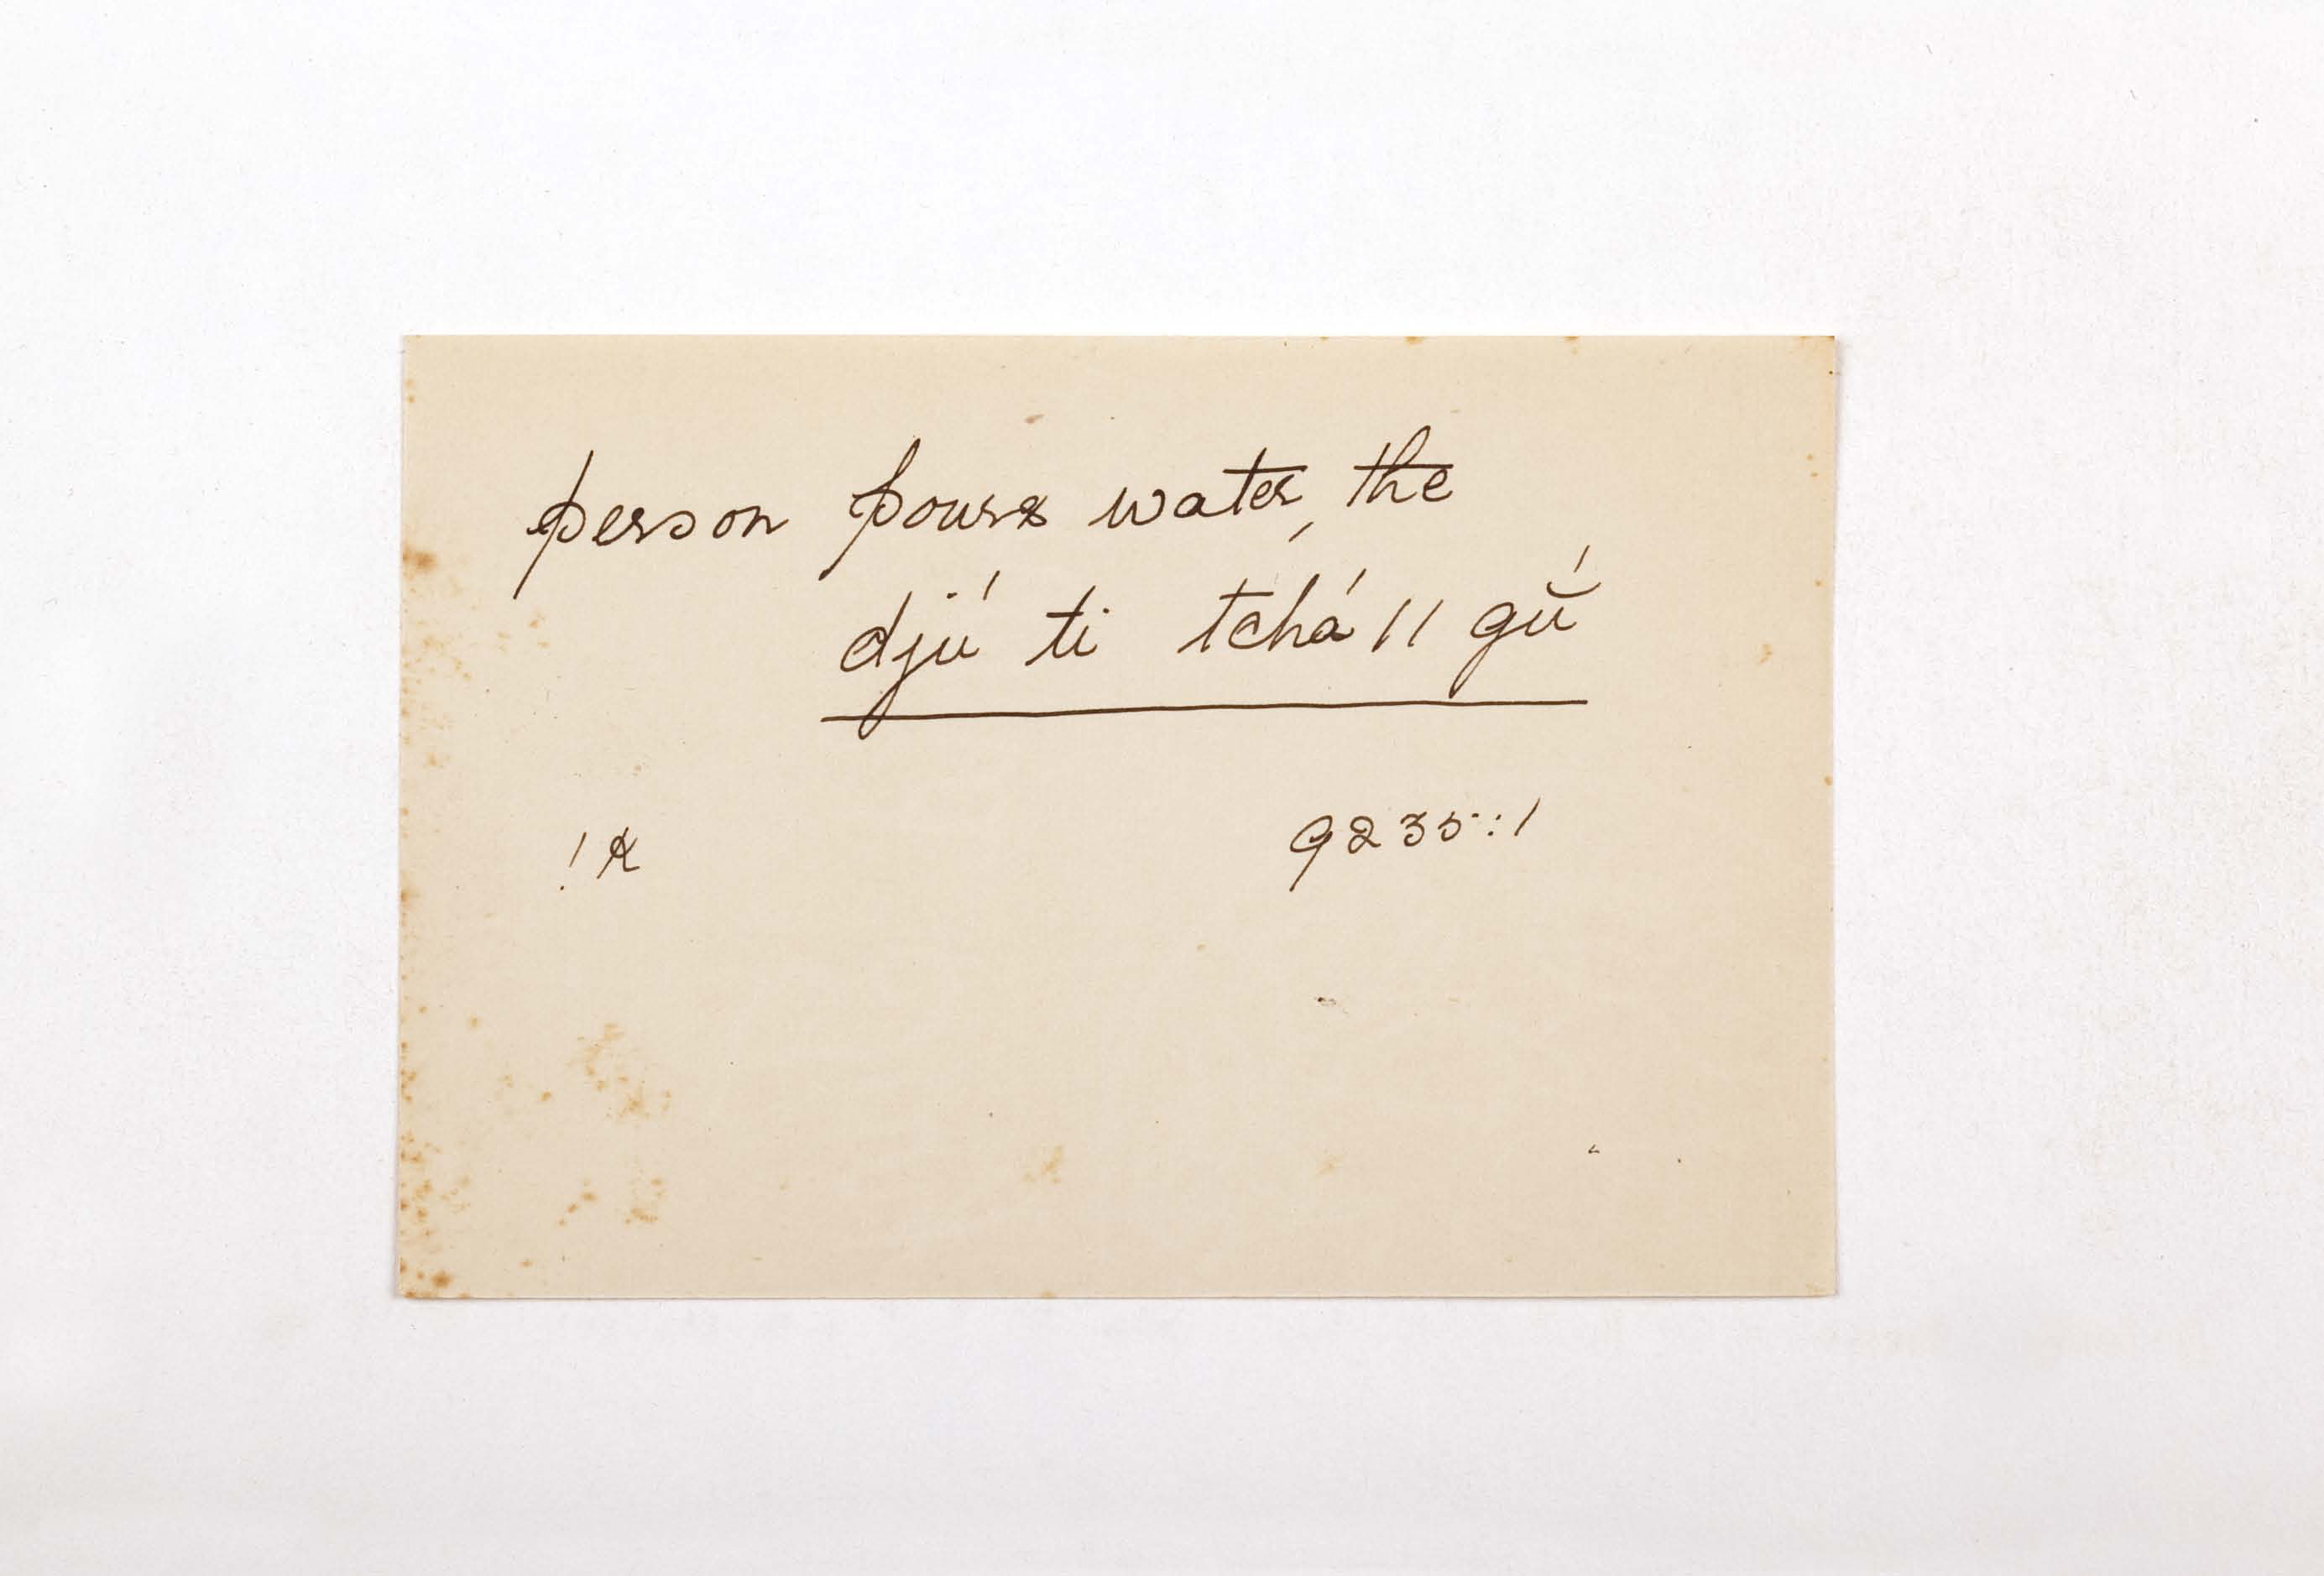 person pours water, the
djú ti tchá || gū́
!k 9235:1